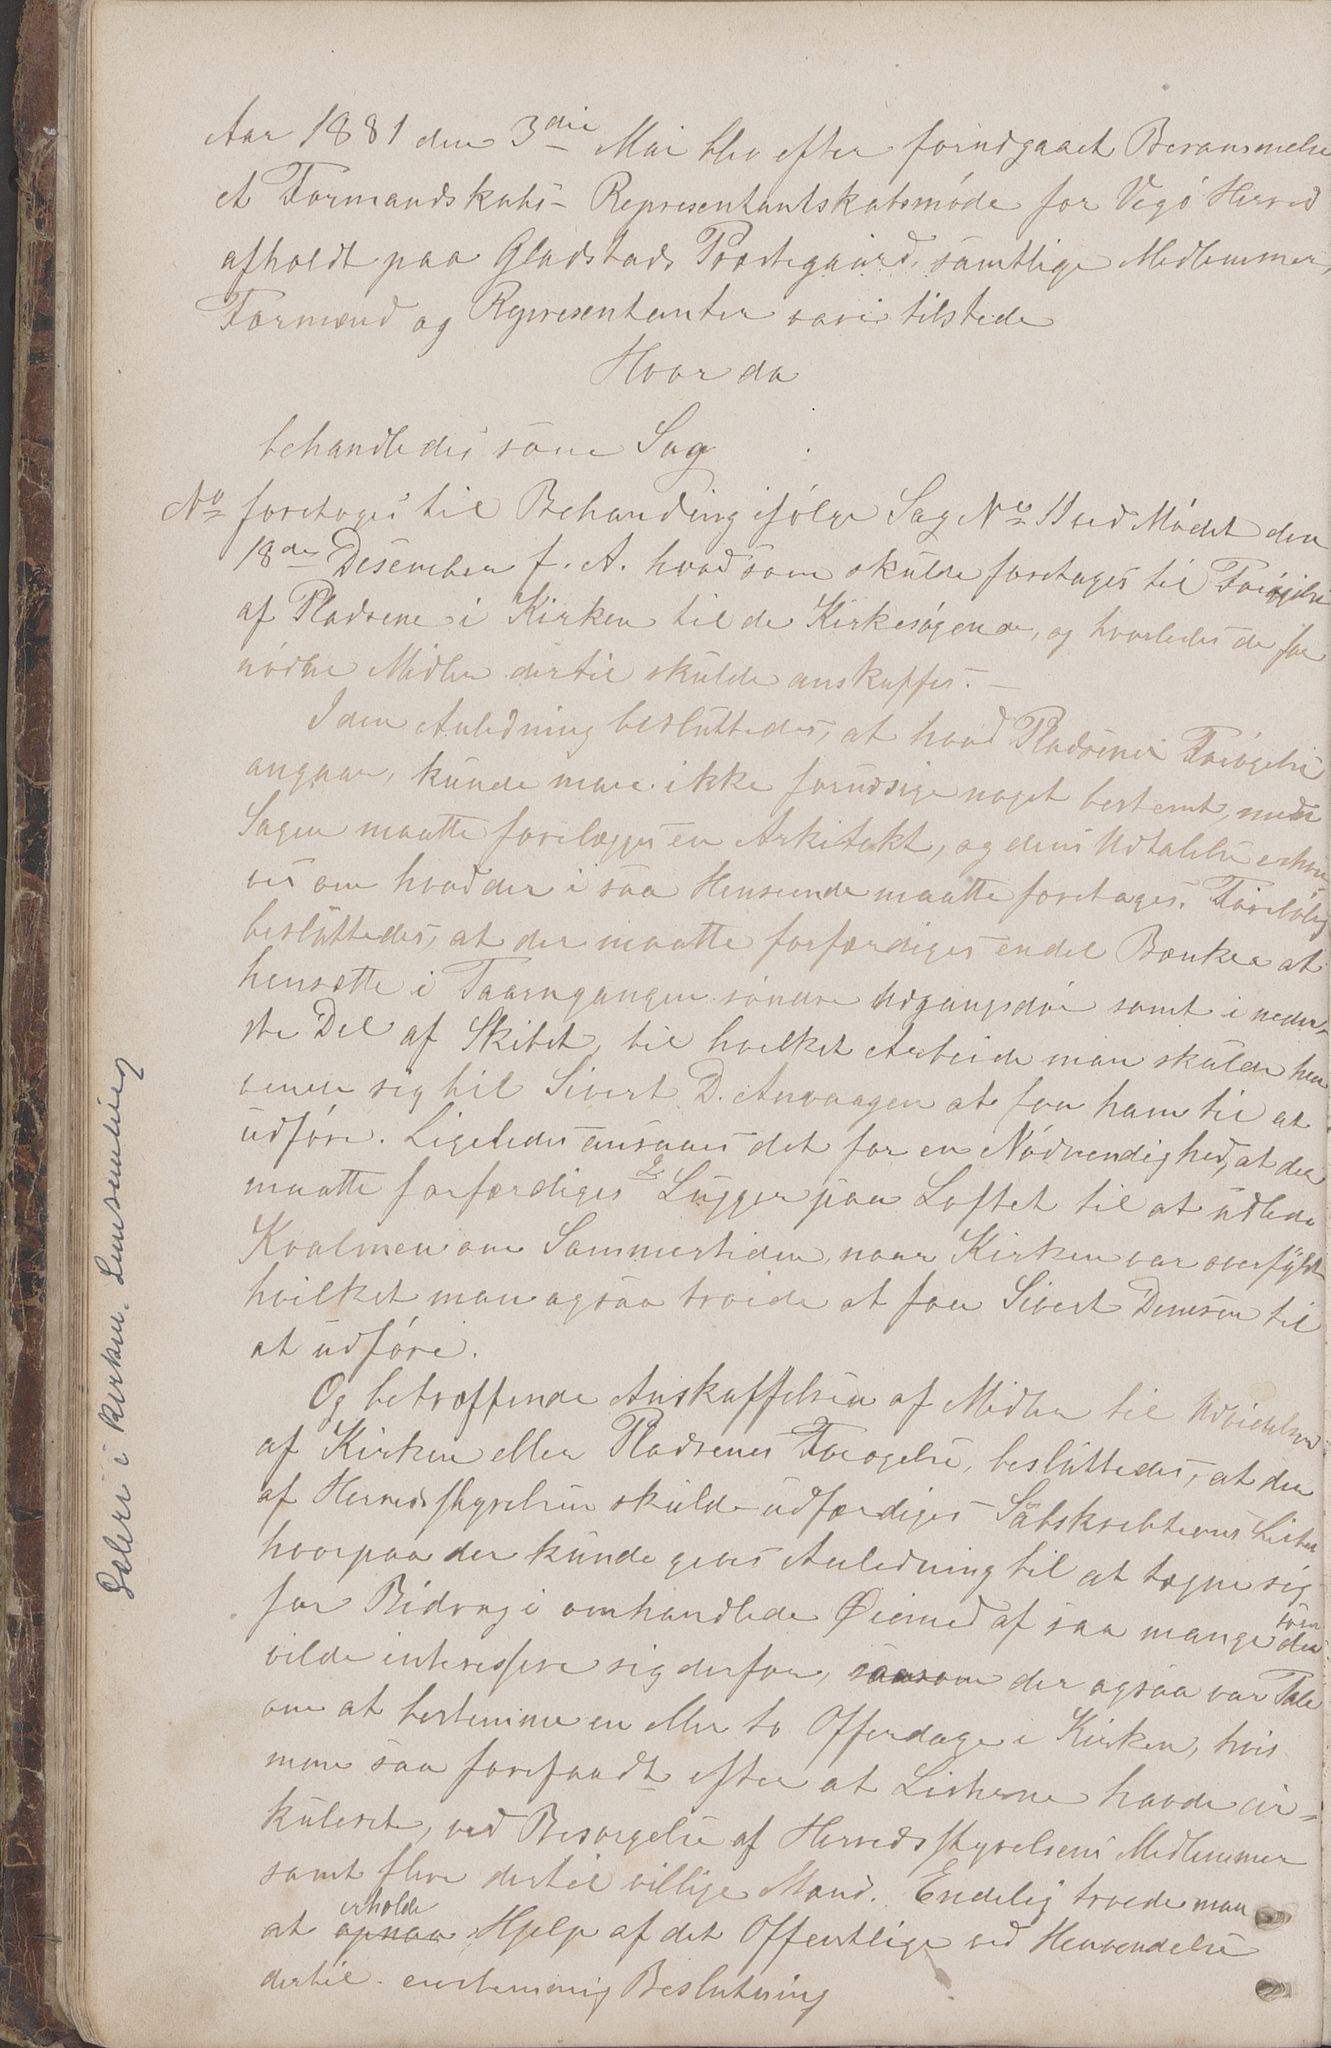 Aar 1881 den 3die Mai blev efter forudgaaet Berammelse
et Formandskabs- Representantskabsmøde for Vegø Herred
afholdt paa Gladstads Præstegaard, samtlige Medlemmer,
Formænd og Representanter vare tilstede
Hvor da
behandledes som Sag
No foretoges til Behanding ifølge Sag No 11 ved Mødet den
18de Desember f. A. hvad som skulde foretages til Forøgelse
af Pladsene i Kirken til de Kirkesøgende, og hvorledes de for
nødne Midler dertil skulde anskaffes. —
I den Anledning besluttedes, at hvad Pladsenes Forøgelse
angaar, kunde man ikke forudsige noget bestemt, men
Sagen maatte forelægges en Arkitekt, og dens Udtalelse erhver
ves om hvad der i saa Henseende maatte foretages. Foreløbig
besluttedes, at der maatte forfærdiges endel Bænker at
hensætte i Taarngangen søndre Udgangsdør samt i neder-
ste Del af Skibet, til hvilket Arbeide man skulde hen
vende sig til Sivert D. Anvaagen at faa ham til at
udføre. Ligeledes ansaaes det for en Nødvendighed, at der
maatte forfærdiges 2 Lugger paa Loftet til at udlede
Kvalmen om Sommertiden, naar Kirken var overfyldt
hvilket man ogsaa troede at faa Sivert Densen til
at udføre.
Og betræffende Anskaffelsen af Midler til Udvidelsen
af Kirken eller Pladsenes Forøgelse, besluttedes, at der
af Herredsstyrelsen skulde udfærdiges Subskribtions Lister
hvorpaa der kunde gives Anledning til at tegne sig
for Bidrag i omhandlede Øiemed af saa mange som der
vilde interessere sig derfor, saasom der ogsaa var Tale
om at bestemme en eller to Offerdage i Kirken, hvis
man saa forefandt efter at Listerne havde cir-
kuleret, ved Besørgelse af Herredsstyrelsens Medlemmer
samt flere dertil villige Mænd. Endelig troede man
at opnaa erholde Hjelp af det Offentlige ved Henvendelse
dertil. enstemmig Beslutning
Seler i kirken. Innsamling